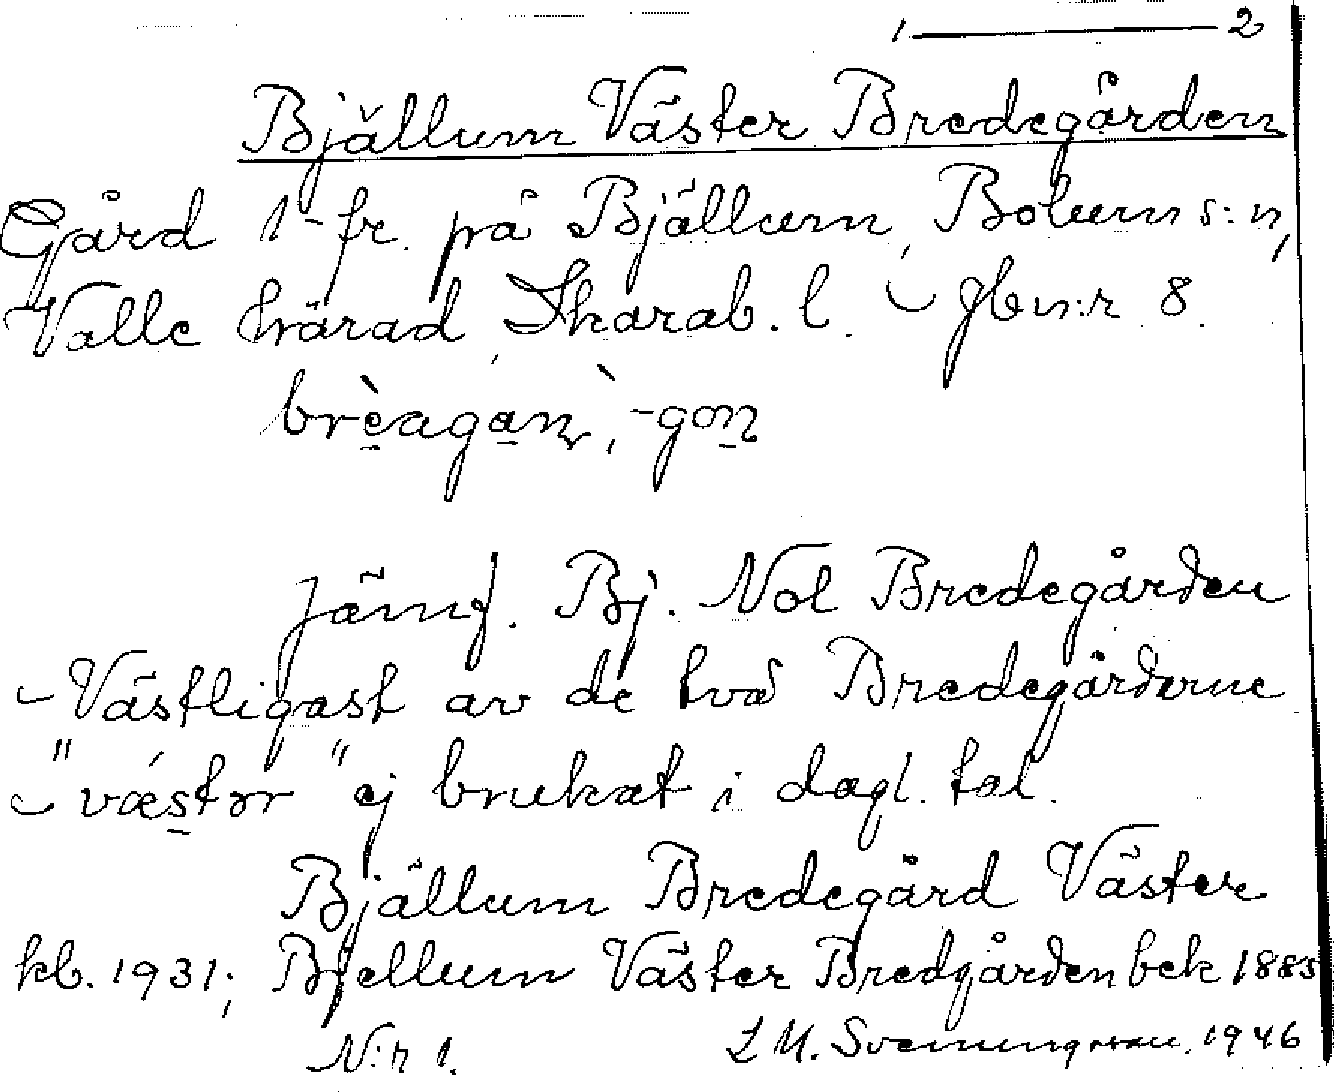 1 — 2
Bjällum Väster Bredegården
Gård 1-fr. på Bjällum, Bolum s:n,
Valle härad, Skarab. l. – Jbn:r 8.
brèagan, -gon
Jämf. Bj. Nol Bredegården
– Västligast av de två Bredegårdarne
– "væstər" ej brukat i dagl. tal.
Bjällum Bredegård Väster
kb. 1931; Bjellum Väster Bredgården bek 1885
N:r 1.
1946